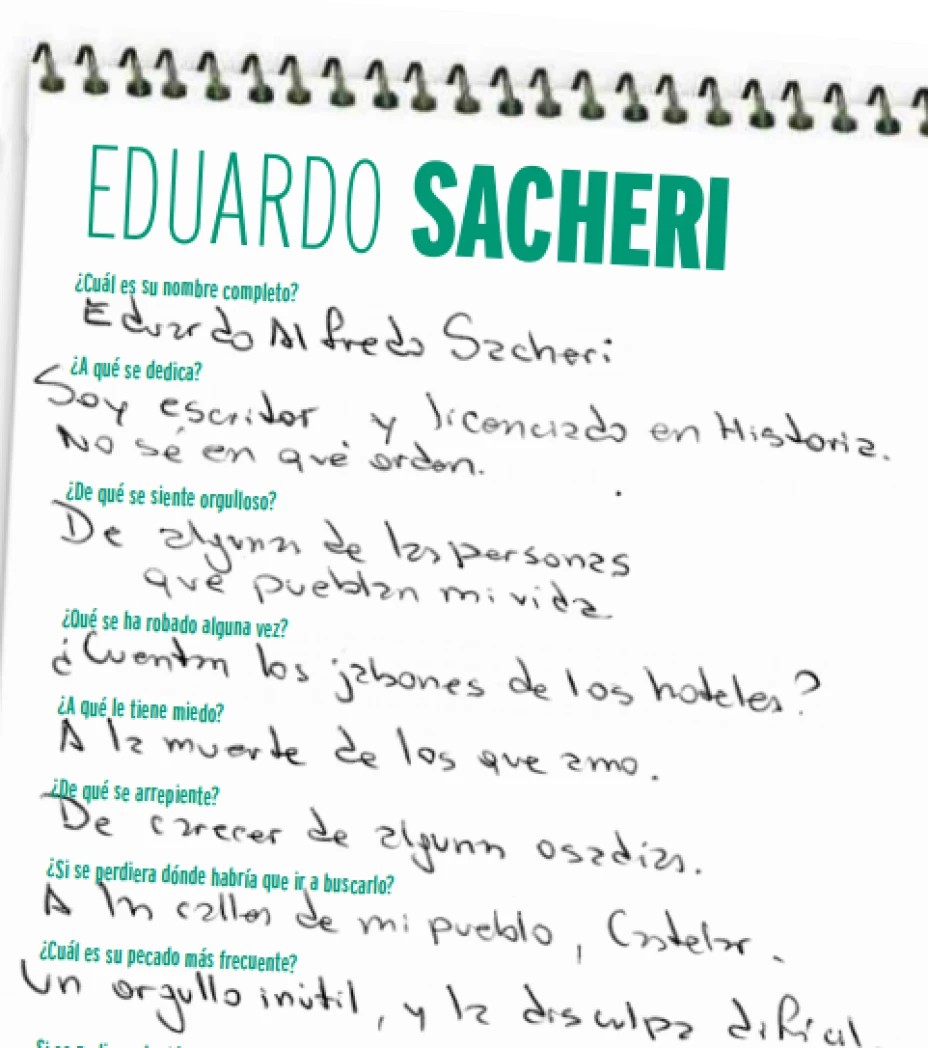 EDUARDO SACHERI
¿Cuál es su nombre completo?
Eduardo Alfredo Sacheri
¿A qué se dedica?
Soy escritor y licenciado en Historia.
No sé en qué orden.
¿De qué se siente orgulloso?
De algunas de las personas
que pueblan mi vida
¿Qué se ha robado alguna vez?
¿Cuentan los jabones de los hoteles?
¿A qué le tiene miedo?
A la muerte de los que amo.
¿De qué se arrepiente?
De carecer de algunas osadías.
¿Si se perdiera dónde habría que ir a buscarlo?
A las calles de mi pueblo, Castelar.
¿Cuál es su pecado más frecuente?
Un orgullo inútil, y la disculpa difícil